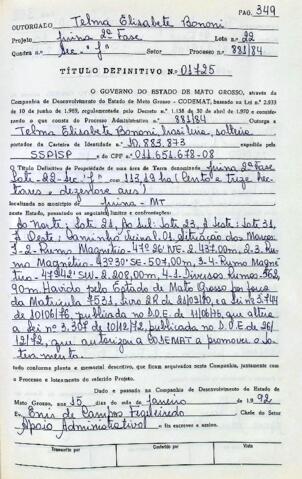 PAG. 349
OUTORGADO Telma Elisabete Bononi
Projeto Juina 2ª Fase Lote n.º 22
Quadra n.º Sec "J" Setor Processo n.º 881/84
TÍTULO DEFINITIVO Nº 01725
O GOVERNO DO ESTADO DE MATO GROSSO, através da
Companhia de Desenvolvimento do Estado de Mato Grosso - CODEMAT, baseado na Lei n.º 2.933
de 10 de junho de 1969, regulamentada pelo Decreto n.º 1.138 de 30 de abril de 1970 e considerando
o que consta do Processo Administrativo n.º 881/84 Outorga a
Telma Elisabete Bononi, brasileira, solteira
portador da Carteira de Identidade n.º 10.883.873 expedida pela
SSPISP e do CPF n.º 011.651.678-08
O Título Definitivo de Propriedade de uma área de Terra denominada Juina 2ª Fase
Lote 22 - Sec "J" com 113,19 ha (Cento e treze hec
tares, dezenove ares)
localizada no município de Juina - MT
neste Estado, passando os seguintes limites e confrontações:
Ao Norte: Lote 21, Ao Sul: Lote 23, A Leste: Lote 31,
A Oeste: Caminho
1-2 Rumo Magnético - 47º36' NE - 2.437,00m, 2-3 Ru
mo Magnético - 43º30' SE - 507,00m, 3-4 Rumo Magné
tico - 47º42' SW - 2.208,00m, 4-1 Diversos Rumos - 562,
90m. Havido pelo Estado de Mato Grosso por força
da Matrícula nº 531, Livro 2B de 21/03/80, e Lei nº 3.744
de 10/06/76, publicada no D.O.E. de 11/06/76, que altera
a Lei nº 3.307 de 10/12/72, publicada no D.O.E. de 26/
12/72, que autoriza a CODEMAT a promover o lo
teamento.
tudo conforme planta e memorial descritivo, que ficam arquivados nesta Companhia, juntamente com
o Processo e loteamento do referido Projeto.
Dado e passado na Companhia de Desenvolvimento do Estado de
Mato Grosso, aos 15 dias do mês de Janeiro de 1992
Eu Enir de Campos Figueiredo Chefe do Setor
Apoio Administrativo - fiz escrever e assino.
Transcrito por Conferido por Visto